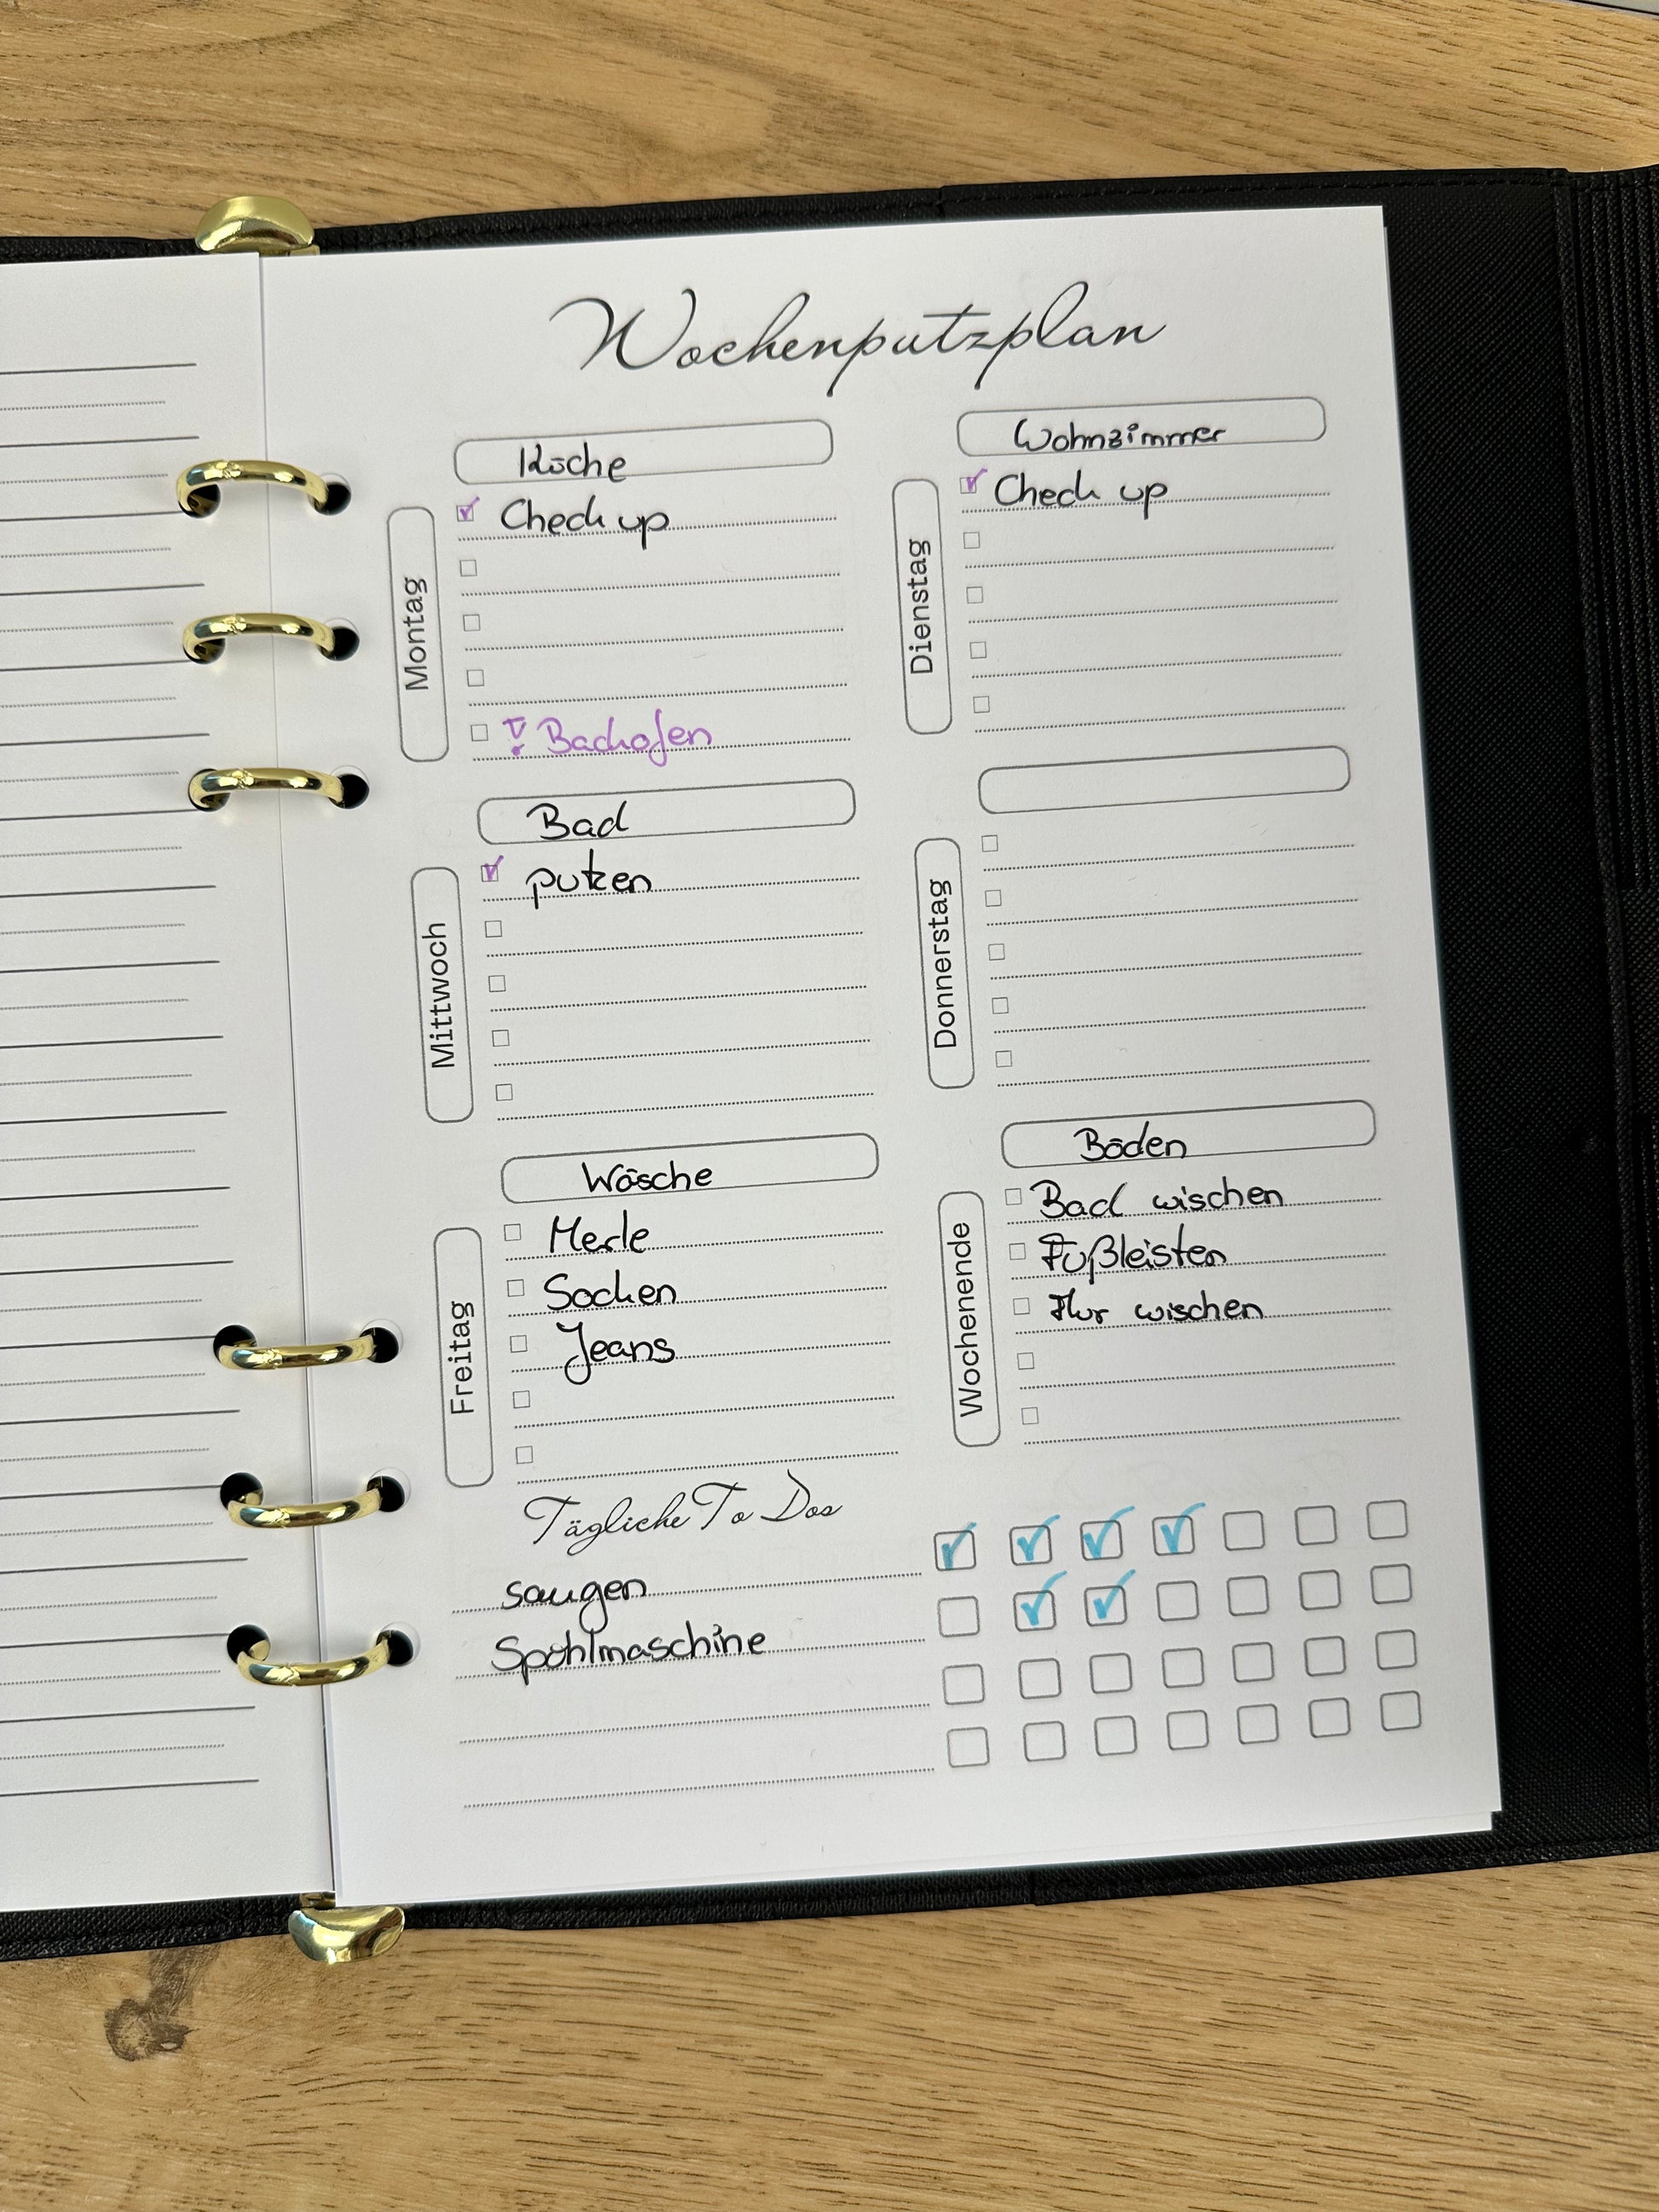 Wochenputzplan
Küche
Montag
Check up
! Backofen
Wohnzimmer
Dienstag
Check up
Bad
Mittwoch
putzen
Donnerstag
Wäsche
Freitag
Merle
Socken
Jeans
Böden
Wochenende
Bad wischen
Fußleisten
Flur wischen
Tägliche To Dos
saugen
Spühlmaschine